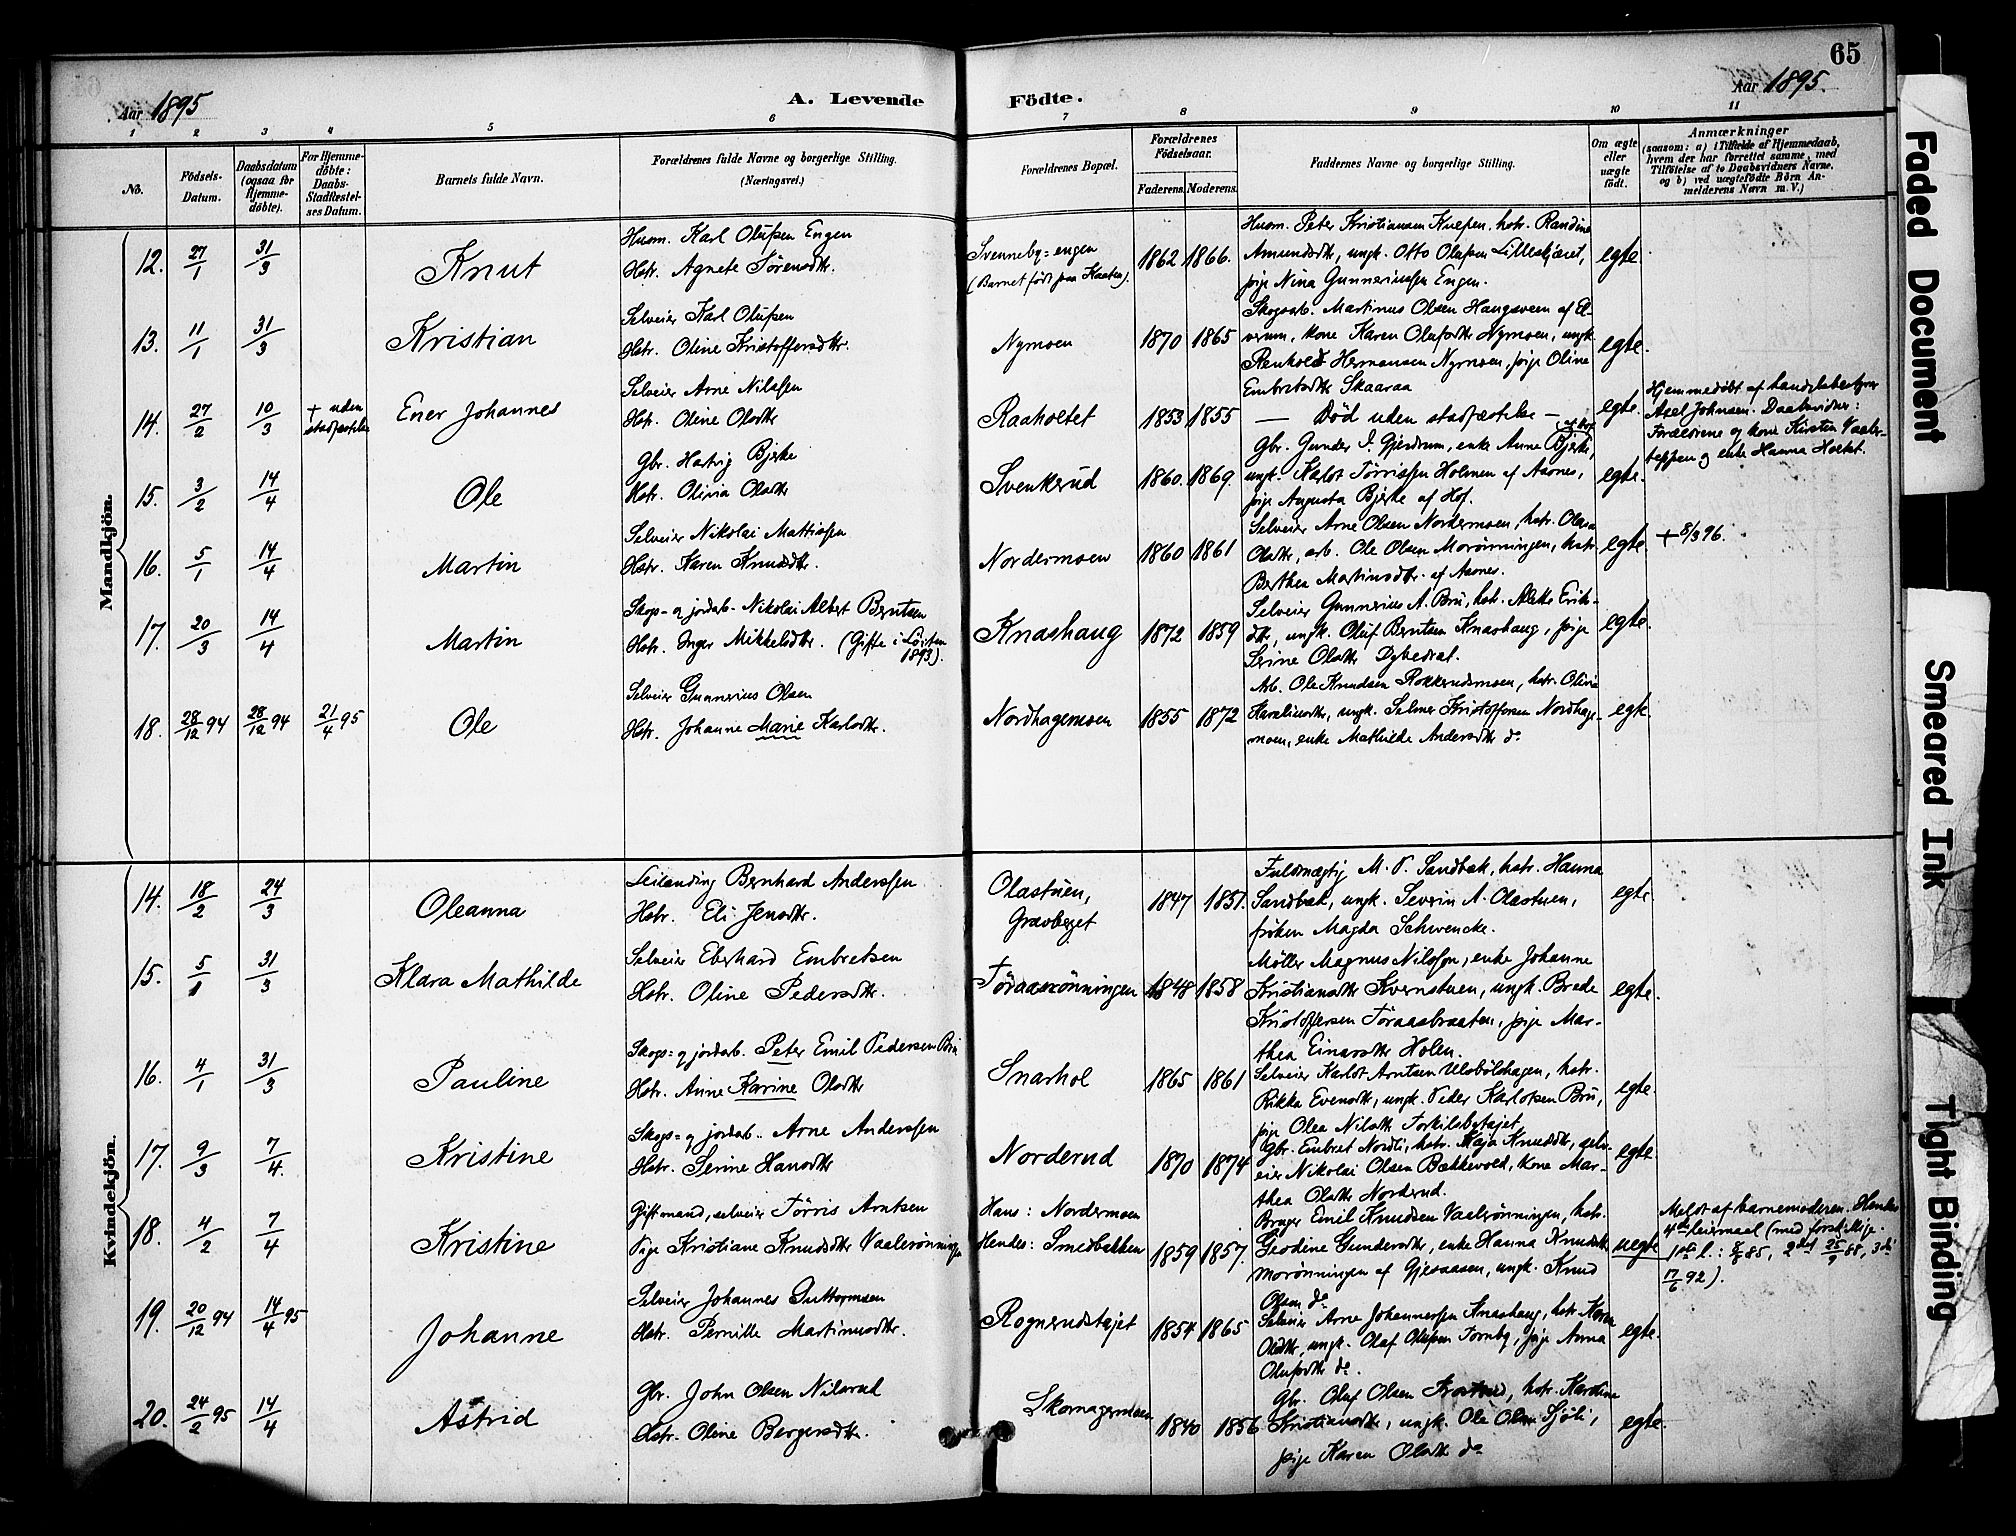 65
Aar 1895
A. Levende Födte.
Aar 1895.
1 2 3 4 5 6 7 8 9 10 11
No.
Fødsels-
Datum.
Daabsdatum
(ogsaa for
Hjemme-
døbte).
For Hjemme-
døbte:
Daabs-
Stadfæstel-
ses Datum.
Barnets fulde Navn.
Forældrenes fulde Navne og borgerlige Stilling.
(Næringsvei.)
Forældrenes Bopæl.
Forældrenes
Födselsaar.
Faderens. Moderens.
Faddernes Navne og borgerlige Stilling.
Om ægte
eller
uægte
födt.
Anmærkninger
(saasom: a) i Tilfælde af Hjemmedaab,
hvem der har forrettet samme, med
Tilföielse af to Daabsvidners Navne,
og b) ved uægtefödte Börn An-
melderens Navn m. V.)
Mandkjön.
12. 27/1 31/3
Knut
Husm. Karl Olufsen Engen
Hstr. Agnete Sörensdtr.
Svenneby-engen
(Barnet födt paa Kaaten).
1862 1866.
Husm. Peter Kristiansen Knepen, hstr. Randine
Amundsdtr, ungk. Otto Olufsen Lilleskjæret,
pige Nina Gunneriusen Engen.
egte.
13. 11/1 31/3
Kristian
Selveier Karl Olufsen
Hstr. Oline Kristoffersdtr.
Nymoen
1870 1865
Skogsarb. Martinus Olsen Haugsveen af El-
verum, kone Karen Olufsdtr Nymoen, ungk.
Renholdt Hermansen Nymoen, pige Oline
Embretsdtr Skaaraa
egte.
14. 27/2 10/3
+ uden
stadfæstelse
Ener Johannes
Selveier Arne Nilssen
Hstr. Oline Olsdtr
Raaholtet
1853 1855
— Död uden stadfæstelse —
egte.
Hjemmedöbt af handelsbestyrer
Axel Johnsen. Daabsvidner:
Forældrene og kone Kirsten Vaaler-
teppen og enke Hanna Holtet.
15. 3/2 14/4
Ole
Gbr. Hartvig Bjerke
Hstr. Olivia Olsdtr
Svenkerud
1860. 1869.
Gbr. Gunder P. Gjerdrum, enke Anne Bjerke, af Hof
ungk. Karlot Törrissen Holmen af Aasnes,
pige Augusta Bjerke af Hof.
egte.
16. 5/1 14/4
Martin
Selveier Nikolai Mattisen
Hstr. Karen Knudsdtr.
Nordermoen
1860 1861
Selveier Arne Olsen Nordermoen, hstr. Olava
Olsdtr, arb. Ole Olsen Morönningen, hstr.
Berthea Martinsdtr. af Aasnes.
egte.
+ 8/3 96.
17. 20/3 14/4
Martin
Skogs- og jordarb. Nikolai Albert Berntsen
Hstr. Inger Mikkelsdtr. (Gifte i Löiten
1893).
Knashaug
1872 1859
Selveier Gunnerius A. Bru, hstr. Alette Eriks-
dtr, ungk. Oluf Berntsen Knashaug, pige
Serine Olsdtr Dybedal.
egte.
18. 28/12 94 28/12 94 21/4 95
Ole
Selveier Gunnerius Olsen
Hstr. Johanne Marie Karlsdtr.
Nordhagemoen
1855 1872
Arb. Ole Knudsen Rokkerudsmoen, hstr. Olivia
Haraldsdtr, ungk. Selmer Kristoffersen Nordhage-
moen, enke Mathilde Andersdtr do
egte.
Kvindekjön.
14. 18/2 24/3
Oleanna
Leilending Bernhard Anderssen
Hstr. Eli Jensdtr.
Olastuen,
Gravberget
1847 1851.
Fuldmægtig M. P. Sandbak, hstr. Hanna
Sandbak, ungk. Severin A. Olastuen,
fröken Magda Schwencke.
egte.
15. 5/1 31/3
Klara Mathilde
Selveier Eberhard Embretsen
Hstr. Oline Pedersdtr.
Töraasrönningen
1848 1858
Möller Magnus Nilssen, enke Johanne
Kristiansdtr Kvernstuen, ungk. Brede
Kristoffersen Töraasbraaten, pige Mar-
thea Einarsdtr Holen.
egte.
16. 4/1 31/3
Pauline
Skogs- og jordarb. Peter Emil Pedersen Bru
Hstr. Anne Karine Olsdtr
Snarhol
1865 1861
Selveier Karlot Arntsen Ulvbölshagen, hstr.
Rikka Evensdtr, ungk. Peder Karlotsen Bru,
pige Olea Nilsdtr Torkilsbytajet.
egte.
17. 9/3 7/4.
Kristine
Skogs- og jordarb. Arne Anderssen
Hstr. Serine Hansdtr
Norderud
1870 1874
Gbr. Embret Nordli, hstr. Kaja Knudsdtr, selv-
eier Nikolai Olsen Bækkevold, kone Mar-
thea Olsdtr Norderud.
egte.
18. 4/2 7/4
Kristine
Gift mand, selveier Törris Arntsen
Pige Kristiane Knudsdtr Vaalerönningen
Hans: Nordermoen
Hendes: Smedbakken
1859 1857.
Bruger Emil Knudsen Vaalerönningen, hstr.
Geodine Gundersdtr, enke Hanna Knudsdtr
Morönningen af Gjesaasen, ungk. Knud
Olsen do
uegte
Meldt af barnemoderen. Hendes
4de leiermaal (med forskjellige.
1ste l.: 85, 2det 25/9 88, 3die
17/6 92).
19. 20/12 94 14/4 95
Johanne
Selveier Johannes Guttormsen
Hstr. Pernille Martinusdtr.
Rognerudstajet
1854 1865
Selveier Arne Johannessen Knashaug, hstr. Karen
Olsdtr, ungk. Olaf Olufsen Tornby, pige Anna
Olufsdtr do.
egte.
20. 24/2 95 14/4
Astrid
Gbr. John Olsen Nilsrud
Hstr. Oline Bergersdtr.
Skomagermoen
1840 1856
Gbr. Oluf Olsen Frostrud, hstr. Karoline
Kristiansdtr, ungk. Ole Olsen Sjöli,
pige Karen Olsdtr do
egte.
Faded Document
Smeared Ink
Tight Binding